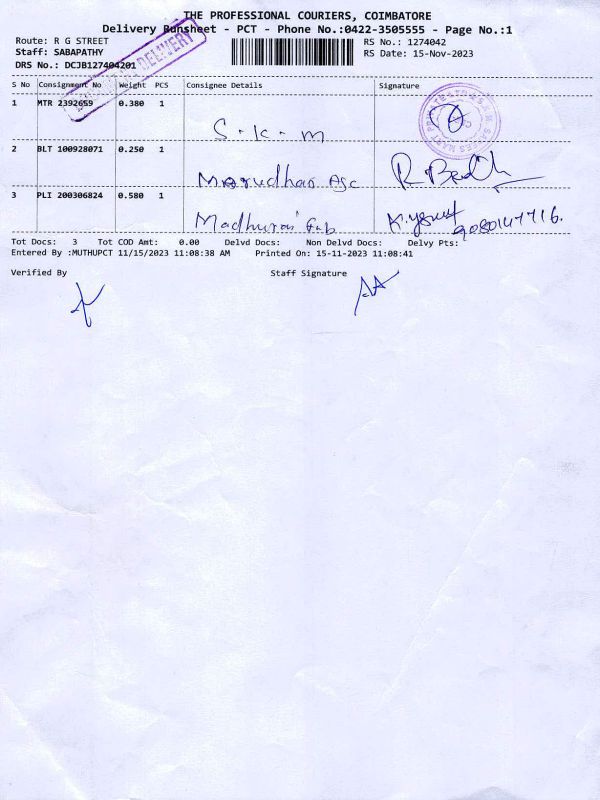 THE PROFESSIONAL COURIERS, COIMBATORE
Delivery Runsheet - PCT - Phone No.:0422-3505555 - Page No.:1
Route: R G STREET
RS No.: 1274042
Staff: SABAPATHY
RS Date: 15-Nov-2023
DRS No.: DCJB127404201
DELIVERY
S No Consignment No Weight PCS Consignee Details Signature
1 MTR 2392659 0.380 1
S.K.M
2 BLT 100928071 0.250 1
Marudhar Agc
3 PLI 200306824 0.580 1
Madhurai Fab
9080147716.
Tot Docs: 3 Tot COD Amt: 0.00 Delvd Docs: Non Delvd Docs: Delvy Pts:
Entered By :MUTHUPCT 11/15/2023 11:08:38 AM Printed On: 15-11-2023 11:08:41
Verified By Staff Signature